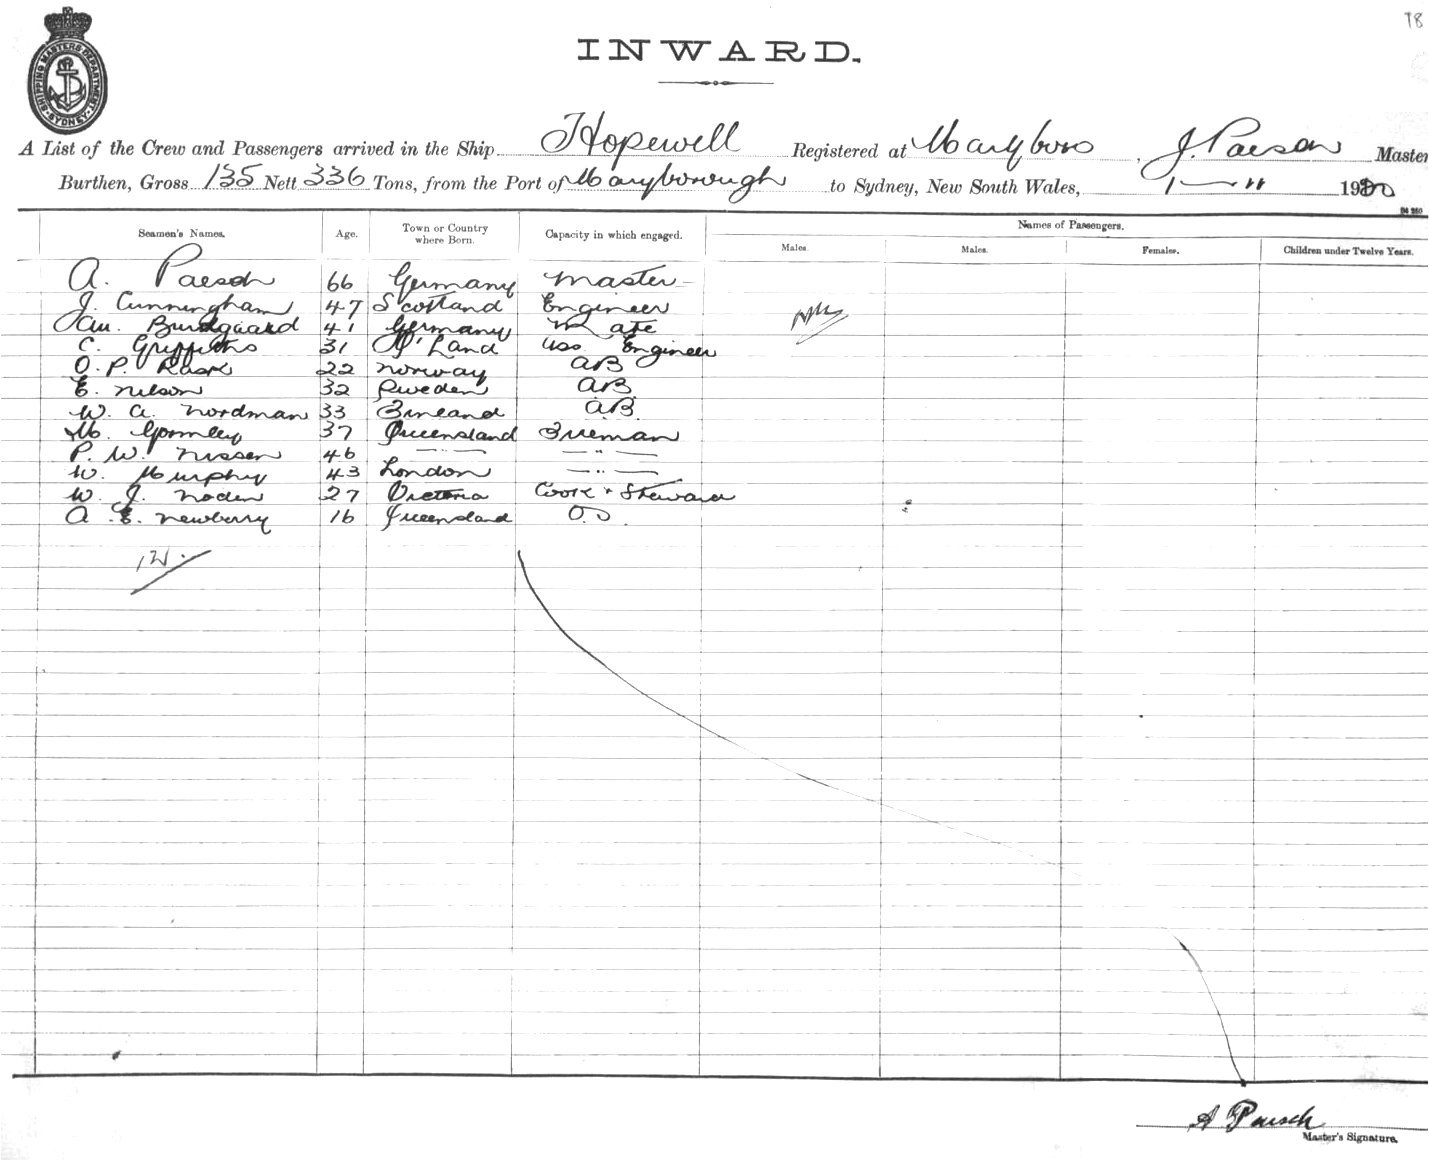 78
INWARD.
SHIPPING MASTERS DEPARTMENT SYDNEY
A List of the Crew and Passengers arrived in the Ship Hopewell Registered at Maryboro, J. Paesch Master
Burthen, Gross 135 Nett 336 Tons, from the Port of Maryborough to Sydney, New South Wales, 1 — 11 1920
Names of Passengers.
Seamen's Names. Age. Town or Country where Born. Capacity in which engaged. Males. Males. Females. Children under Twelve Years.
A. Paesch 66 Germany Master
J. Cunningham 47 Scotland Engineer
Bundgaard 41 Germany Mate
C. Griffiths 31 Land Engineer
O. P. Rask 22 Norway AB
E. Nelson 32 Sweden AB
W. A. Nordman 33 Finland AB
M. Gormley 37 Queensland Fireman
P. W. Nissen 46 — " — — " —
W. Murphy 43 London — " —
W. J. Noden 27 Victoria Cook + Steward
A. E. Newberry 16 Queensland O.S.
12.
A Paesch
Master's Signature.